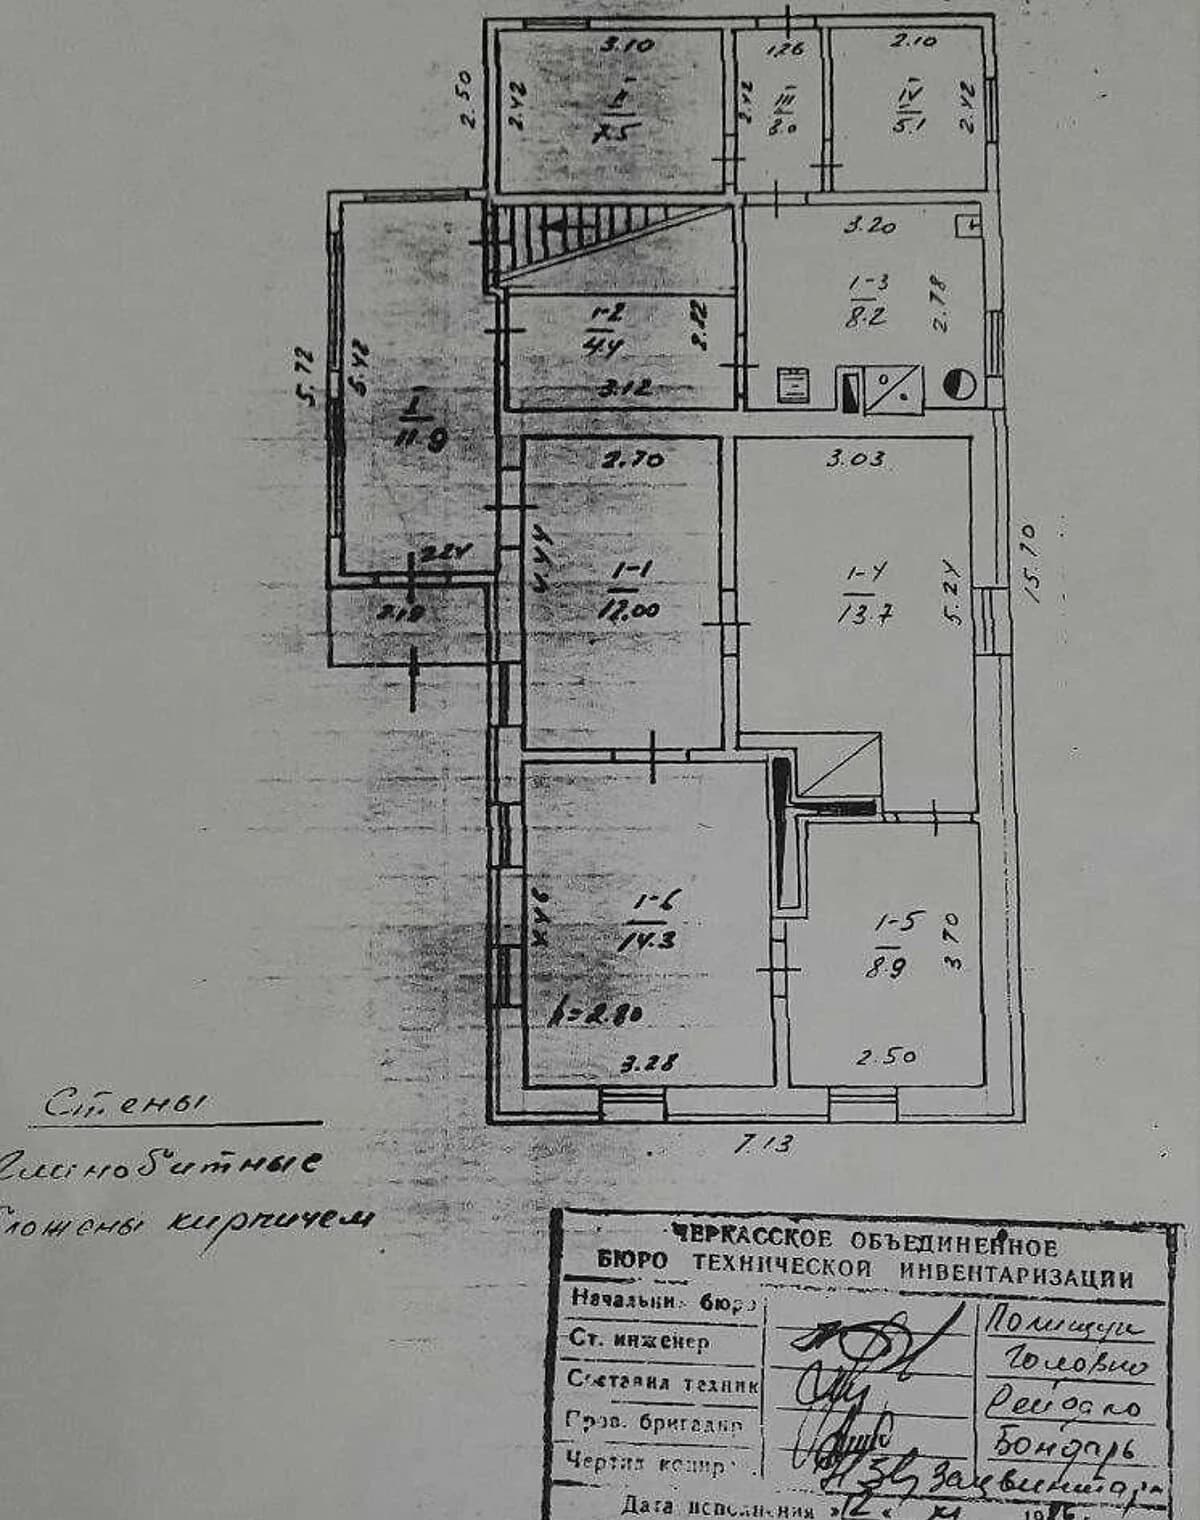 3.10
126
2.10
2.50
2.42
II
7.5
2.42
III
3.0
IV
5.1
2.42
3.20
1-3
8.2
2.78
1-2
4.4
3.12
5.72
5.42
I
11.9
2.70
3.03
224
4.44
1-1
12.00
1-4
13.7
5.24
15.70
2.19
1-6
14.3
1-5
8.9
3.70
h=2.80
3.28
2.50
7.13
Стены
Глинобитные
кирпичем
ЧЕРКАССКОЕ ОБЪЕДИНЕННОЕ
БЮРО ТЕХНИЧЕСКОЙ ИНВЕНТАРИЗАЦИИ
Начальник бюро Полищук
Ст. инженер Головко
Составил техник
Пров. бригадир Бондарь
Чертил копир.
Дата исполнения "12" XI